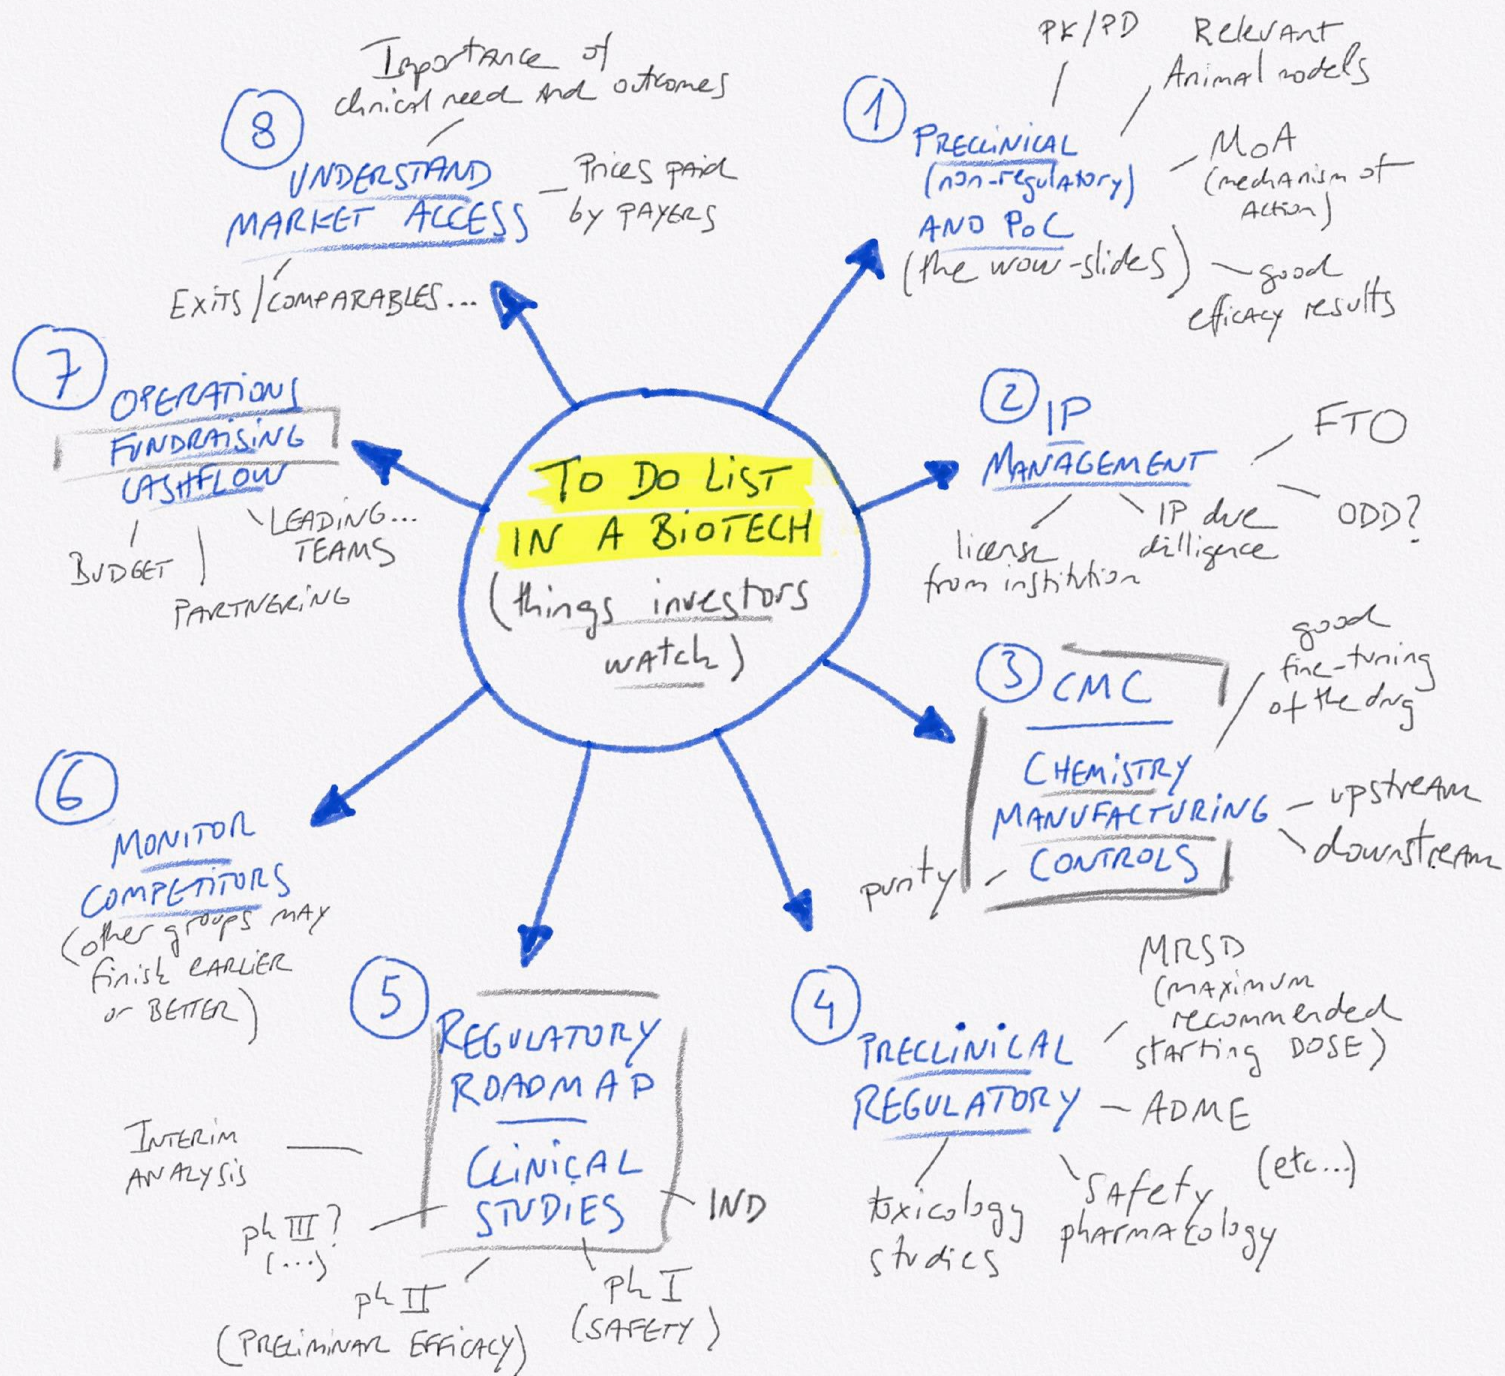 TO DO LIST
IN A BIOTECH
(things investors
watch)
1
PRECLINICAL
(non-regulatory)
AND PoC
(the wow-slides)
PK/PD
Relevant
Animal models
MoA
(mechanism of
Action)
good
efficacy results
2
IP
MANAGEMENT
FTO
ODD?
IP due
dilligence
license
from institution
3
CMC
CHEMISTRY
MANUFACTURING
CONTROLS
good
fine-tuning
of the drug
upstream
downstream
purity
4
PRECLINICAL
REGULATORY
MRSD
(MAXIMUM
recommended
starting DOSE)
ADME
(etc...)
Safety
pharmacology
toxicology
studies
5
REGULATORY
ROADMAP
CLINICAL
STUDIES
IND
ph I
(SAFETY)
ph II
(PRELIMINAR EFFICACY)
ph III?
(...)
INTERIM
ANALYSIS
6
MONITOR
COMPETITORS
(other groups MAY
finish EARLIER
or BETTER)
7
OPERATIONS
FUNDRAISING
CASHFLOW
LEADING...
TEAMS
PARTNERING
BUDGET
8
UNDERSTAND
MARKET ACCESS
Importance of
clinical need and outcomes
Prices paid
by PAYERS
EXITS/COMPARABLES...